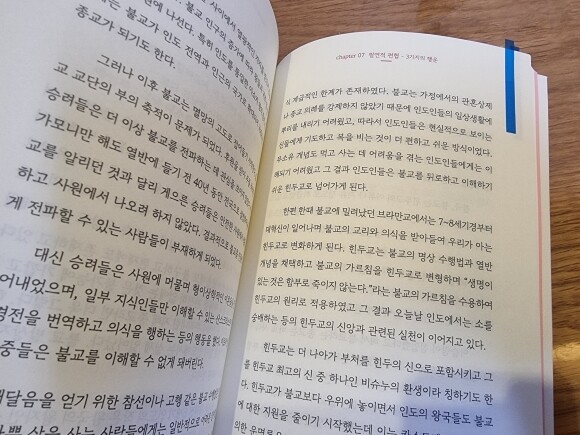 사이에서
진에 나선다. 불교 인구의 증가에
불교가 인도 전역과 인근의 국가로
종교가 되기도 한다.
그러나 이후 불교는 열망의 고도로
교 교단의 부의 축적이 문제가 되었다. 후원을
승려들은 더 이상 불교를 전파하는 데 관심을
가모니만 해도 열반에 들기 전 40년 동안 전국으로
교를 알리던 것과 달리 게으른 승려들은 안전한
하고 사원에서 나오려 하지 않았다. 결과적으로 불교
게 전파할 수 있는 사람들이 부재하게 되었다.
대신 승려들은 사원에 머물며 형이상학적인
어내었으며, 일부 지식인들만 이해할 수 있는
경전을 번역하고 의식을 행하는 등의 행동을 했다.
중들은 불교를 이해할 수 없게 돼버린다.
깨달음을 얻기 위한 참선이나 고행 같은
바쁜 삶을 사는 사람들에게는 일반적으로 어려운
chapter 07 필연적 편협 - 3가지의 행운
식, 계급적인 한계가 존재하였다. 불교는 가정에서의 관혼상제
나 종교 의례를 강제하지 않았기 때문에 인도인들의 일상생활에
뿌리를 내리기 어려웠고, 따라서 인도인들은 현실적으로 보이는
신들에게 기도하고 복을 비는 것이 더 편하고 쉬운 방식이었다.
무소유 개념도 먹고 사는 데 어려움을 겪는 인도인들에게는 이
해되기 어려웠고 그 결과 인도인들은 불교를 뒤로하고 이해하기
쉬운 힌두교로 넘어가게 된다.
한편 한때 불교에 밀려났던 브라만교에서는 7~8세기경부터
대혁신이 일어나며 불교의 교리와 의식을 받아들여 우리가 아는
힌두교로 변화하게 된다. 힌두교는 불교의 명상 수행법과 열반
개념을 채택하고 불교의 가르침을 힌두교로 변형하며 "생명이
있는 것은 함부로 죽이지 않는다."라는 불교의 가르침을 수용하여
힌두교의 원리로 적용하였고 그 결과 오늘날 인도에서는 소를
숭배하는 등의 힌두교의 신앙과 관련된 실천이 이어지고 있다.
힌두교는 더 나아가 부처를 힌두의 신으로 포함시키고 그
를 힌두교 최고의 신 중 하나인 비슈누의 환생이라 칭하기도 한
다. 힌두교가 불교보다 우위에 놓이면서 인도의 왕국들도 불교
에 대한 지원을 줄이기 시작했는데 이는
의 운명로